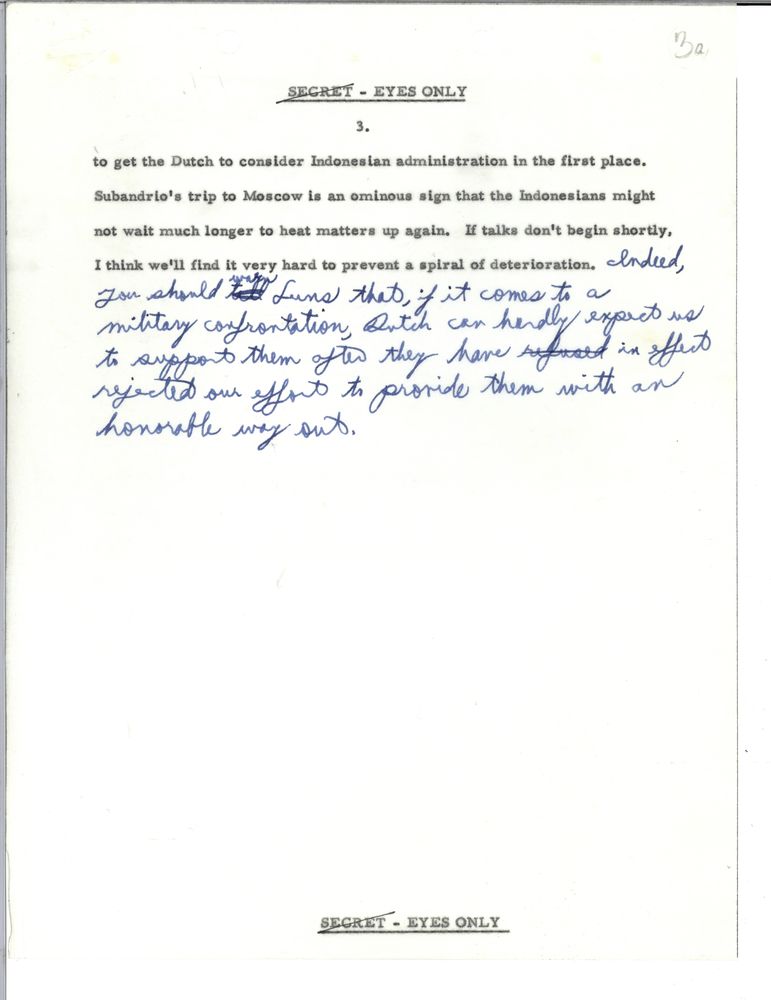 3a
SECRET - EYES ONLY
3.
to get the Dutch to consider Indonesian administration in the first place.
Subandrio's trip to Moscow is an ominous sign that the Indonesians might
not wait much longer to heat matters up again. If talks don't begin shortly,
I think we'll find it very hard to prevent a spiral of deterioration. Indeed,
warn
you should tell Luns that, if it comes to a
military confrontation, Dutch can hardly expect us
to support them after they have refused in effect
rejected our effort to provide them with an
honorable way out.
SECRET - EYES ONLY